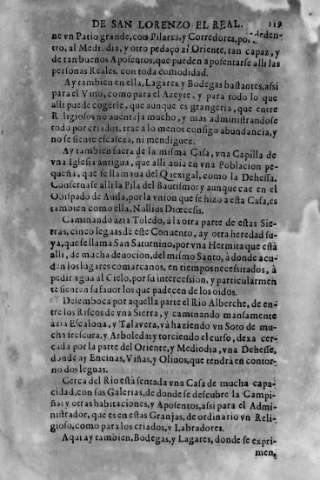 DE SAN LORENZO EL REAL. 119
ne vn Patio grande, con Pilares, y Corredores, por
tro, al Medio dia, y otro pedaço al Oriente, tan capaz, y
de tan buenos Aposentos, que pueden aposentarse alli las
personas Reales, con toda comodidad.
Ay tambien en ella, Lagares, y Bodegas bastantes, assi
para el Vino, como para el Azeyte, y para todo lo que
alli puede cogerse, que aunque es grangeria, que entre
Religiosos no auentaja mucho, y mas administrandose
todo por criados, trae a lo menos consigo abundancia, y
no se siente escaseza, ni mendiguez.
Ay tambien fuera de la misma Casa, vna Capilla de
vna Iglesia antigua, que alli auia en vna Poblacion pe-
queña, que se llamaua del Quexigal, como la Dehessa.
Conseruase alli la Pila del Bautismo: y aunque cae en el
Obispado de Auila, por la vnion que se hizo a esta Casa, es
tambien como ella, Nullius Diœcesis.
Caminando azia Toledo, à la otra parte de estas Sier-
ras, cinco leguas de este Conuento, ay otra heredad su-
ya, que se llama San Saturnino, por vna Hermita que està
alli, de mucha deuocion, del mismo Santo, à donde acu-
den los lugares comarcanos, en tiempos necessitados, à
pedir agua al Cielo, por su intercession, y particularmen-
te sienten su fauor los que padecen de los oidos.
Desemboca por aquella parte el Rio Alberche, de en-
tre los Riscos de vna Sierra, y caminando mansamente
azia Escalona, y Talavera, và haziendo vn Soto de mu-
cha frescura, y Arboleda; y torciendo el curso, dexa cer-
cada por la parte del Oriente, y Mediodia, vna Dehessa,
donde ay Encinas, Viñas, y Oliuos, que tendrà en contor-
no dos leguas.
Cerca del Rio està sentada vna Casa de mucha capa-
cidad, con sus Galerias, de donde se descubre la Campi-
ña; y otras habitaciones, y Aposentos, assi para el Admi-
nistrador, que es en estas Granjas, de ordinario vn Reli-
gioso, como para los criados, y Labradores.
Aqui ay tambien, Bodegas, y Lagares, donde se expri-
men,